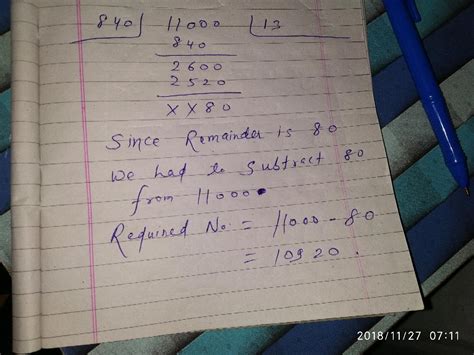 840) 11000 (13
840
2600
2520
XX80
Since Remainder is 80
We had to Subtract 80
from 11000
Required No = 11000 - 80
= 10920.
2018/11/27 07:11